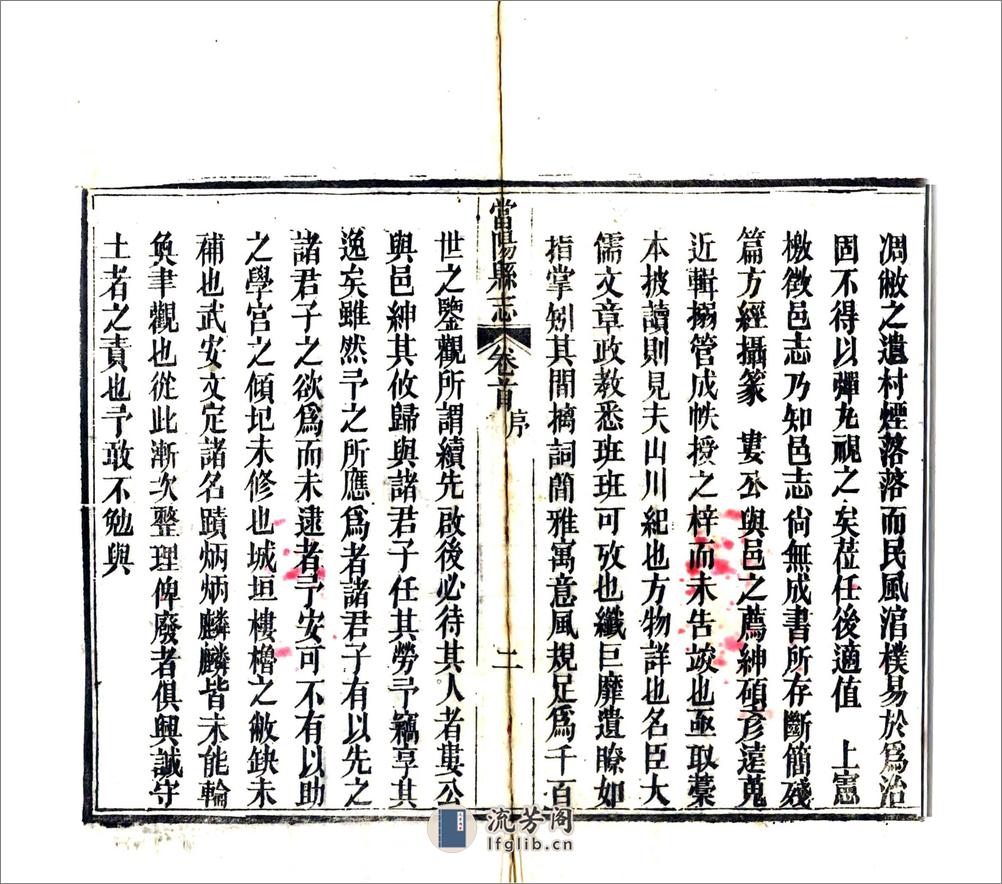 凋敝之遺村煙落落而民風涫樸易於爲治
固不得以彈丸視之矣莅任後適值　上憲
檄徵邑志乃知邑志尙無成書所存斷簡殘
篇方經攝篆　婁公與邑之薦紳碩彥遠蒐
近輯搦管成帙授之梓而未告竣也亟取藁
本披讀則見夫山川紀也方物詳也名臣大
儒文章政教悉班班可攷也纖巨靡遺瞭如
指掌矧其間摛詞簡雅寓意風規足爲千百
當陽縣志　卷首　序　二
世之鑒觀所謂續先啟後必待其人者婁公
與邑紳其攸歸與諸君子任其勞予竊享其
逸矣雖然予之所應爲者諸君子有以先之
諸君子之欲爲而未逮者予安可不有以助
之學宮之傾圮未修也城垣樓櫓之敝缺未
補也武安文定諸名蹟炳炳麟麟皆未能輪
奐聿觀也從此漸次整理俾廢者俱興誠守
土者之責也予敢不勉與
流芳阁
lfglib.cn